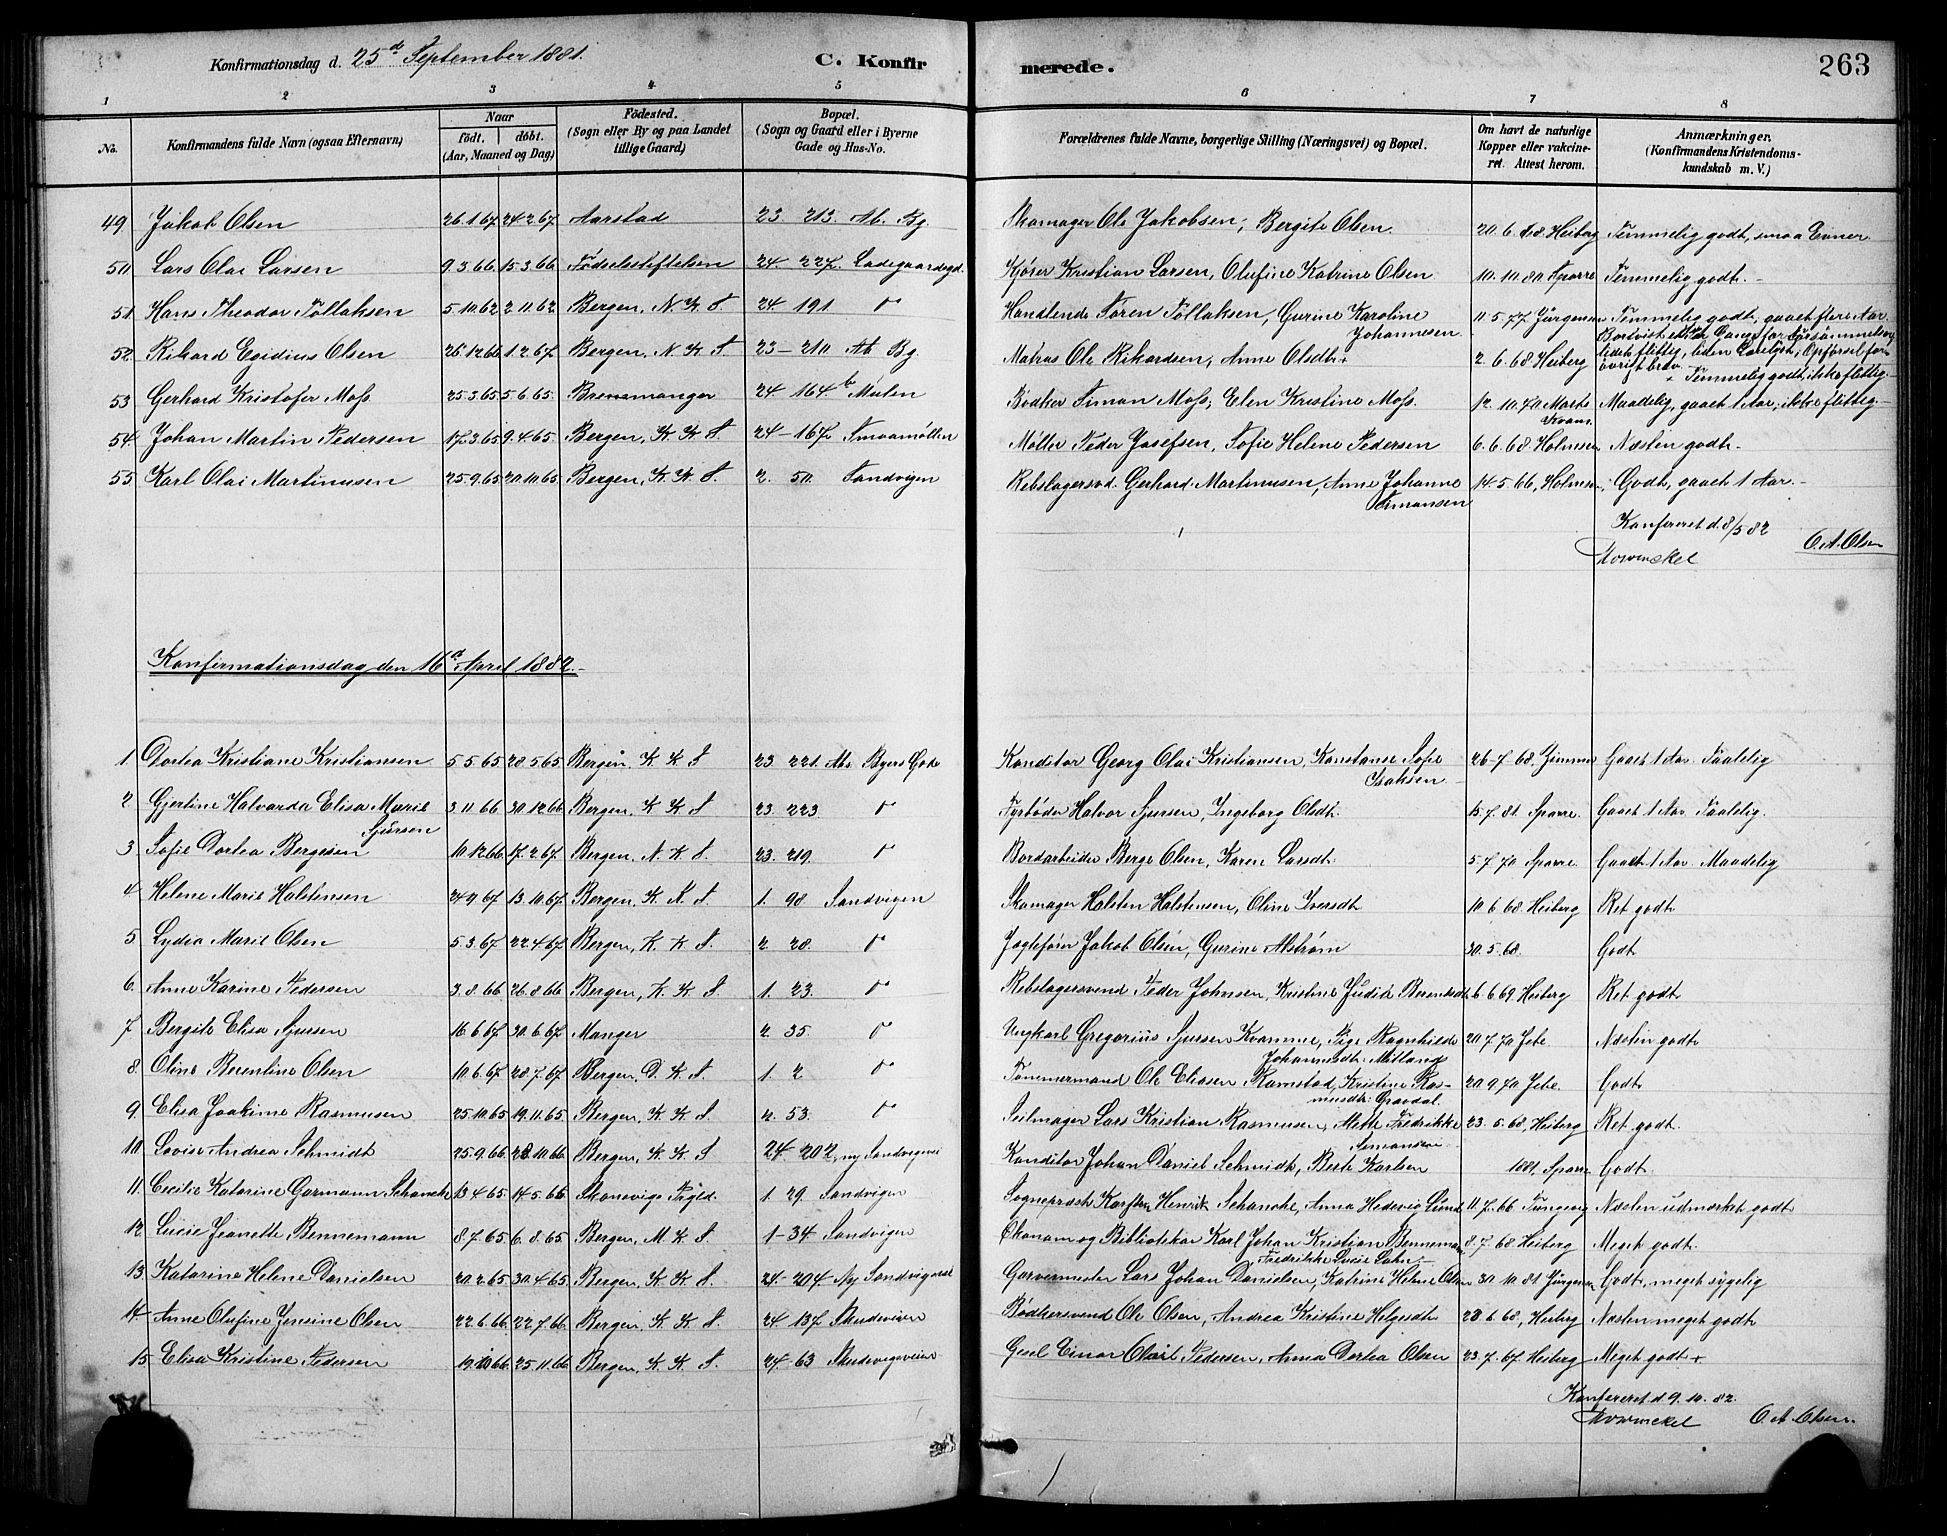 Konfirmationsdag d. 25de September 1881. C. Konfirmerede. 263
1 2 3 4 5 6 7 8
No. Konfirmandens fulde Navn (ogsaa Efternavn) Naar födt. döbt. (Aar, Maaned og Dag) Födested. (Sogn eller By og paa Landet tillige Gaard) Bopæl. (Sogn og Gaard eller i Byerne Gade og Hus-No. Forældrenes fulde Navne, borgerlige Stilling (Næringsvei) og Bopæl. Om havt de naturlige Kopper eller vakcineret. Attest herom. Anmærkninger. (Konfirmandens Kristendomskundskab m. V.)
49 Jakob Olsen 26.1.67 24.2.67 Aarstad 23. 213. At. Bg. Skomager Ole Jakobsen, Bergite Olsen 20.6.68 Heiberg Temmelig godt, smaa Evner
50 Lars Olai Larsen 9.3.66 15.3.66 Fødselsstiftelsen 24. 227. Ladegaardsgd. Kjører Kristian Larsen, Olufine Katrine Olsen 10.10.80 Sparre Temmelig godt.
51. Hans Theodor Tollaksen 5.10.62 2.11.62 Bergen, N. K. S 24 191 " Handlende Søren Tollaksen, Gurine Karoline Johannesen 11.5.77 Jürgensen Temmelig godt, gaaet flere Aar.
Bortvist Gange for Forsømmelse, lidet flittig, liden Læselyst, Opførsel forøvrigt brav
52. Rikard Egidius Olsen 26.12.66 1.2.67 Bergen, N. K. S 23-210 At Bg. Matros Ole Rikardsen, Anne Olsdtr 2.6.68 Heiberg Temmelig godt, ikke flittig.
53 Gerhard Kristofer Moss 25.3.65 5.6.65 Bremanger 24 164 b Mulen Bødker Simon Moss, Elen Kristine Moss. 12.10.70 Marte Kvam. Maadelig, gaaet 1 Aar, ikke flittig.
54. Johan Martin Pedersen 17.3.65 9.4.65 Bergen, K. K. S. 24-167 Smaamøllen Møller Peder Josefsen, Sofie Helene Pedersen 6.6.68 Holmsen Næsten godt.
55 Karl Olai Martinusen 25.9.65 20.10.65 Bergen, K. K. S. 2. 50 Sandvigen Rebslagersvd. Gerhard Martinusen, Anne Johanne Simonsen 14.5.66, Holmsen Godt, gaaet 1 Aar.
Konfereret d. 8/5 82
Mowinckel O. A. Olsen
Konfirmationsdag den 16de April 1882.
1 Dortea Kristiane Kristiansen 5.5.65 28.5.65 Bergen. K. K. S 23 221. At. Byens Gade Konditor Georg Olai Kristiansen, Konstanse Sofie Isaksen 26-7.68. Gaaet 1 Aar. Taalelig
2 Gjertine Halvarda Elisa Marie Sjursen 3.11.66 30.12.66 Bergen, K. K. S. 23. 223 " Fyrbøder Halvor Sjursen, Ingeborg Olsdtr. 15.7.81. Sparre. Gaaet 1 Aar Taalelig.
3 Sofie Dortea Bergesen 10.12.66 17.2.67 Bergen, N. K. S. 23. 219. " Bordarbeider Berge Olsen, Karen Larsdtr. 5.7.70 Sparre. Gaaet 1 Aar. Maadelig
4. Helene Marie Halstensen 24.9.67 13.10.67 Bergen, K. K. S 1. 98 Sandvigen Skomager Halsten Halstensen, Oline Iversdtr 10.6.68. Heiberg Ret godt
5. Lydia Marie Olsen 5.3.67 22.4.67 Bergen, K. K S. 2. 28. " Jagtefører Jakob Olsen, Gurine Alstrøm 30.5.68. Godt
6. Anne Karine Pedersen 3.8.66 26.8.66 Bergen, K. K. S. 1. 23. " Rebslagersvend Peder Johnsen, Kristine Judid Berentsdtr 6.6.69. Heiberg Ret godt
7 Bergite Elisa Sjursen 16.6.67 30.6.67 Manger 2. 35. " Ungkarl Gregorius Sjursen Kvamme, Pige Ragnhilde Johannesdtr. Mitlang 20.7.70 Jebe. Næsten godt
8. Oline Berentine Olsen 10.6.67 28.7.67 Bergen, D. K. S 1. 2 " Tømmermand Ole Eliasen Ramstad, Kristine Rasmusdtr. Gravdal. 20.9.70 Jebe. Godt
9. Elisa Joakime Rasmusen 25.10.65 19.11.65 Bergen, K. K. S 2. 53. " Seilmager Lars Kristian Rasmusen, Mette Fredrikke Simonsen 23.5.68, Heiberg Ret godt
10. Lovise Andrea Schmidt 25.9.66 28.10.66 Bergen, K. K. S 24. 202, ny Sandvigsvei Konditor Johan Daniel Schmidt, Berte Karlsen 1881. Sparre Godt.
11. Cecilie Katarine Garmann Schanche 13.4.65 14.5.66. Skonevigs Pgld. 1. 29. Sandvigen Sogneprest Karsten Henrik Schanche, Anna Hedevig Lund 11.7.66 Næsten udmærket godt
12. Lucie Jeanette Bennemann 8.7.65 6.8.65 Bergen, M K. S 1-34 Sandvigen Økonom og Bibliotekar Karl Johan Kristian Bennemann Fredrikke Lucie Lahn 8.7.68 Heiberg Meget godt.
13. Katarine Helene Danielsen 20.2.65 30.4.65 Bergen, K. K. S. 24-204 Ny Sandvigsvei Garvermester Lars Johan Danielsen, Katrine Helene Olsen 30.10.81 Jürgensen Godt, meget sygelig
14. Anne Olufine Jensine Olsen 22.6.66 22.7.66. Bergen, K. K. S. 24. 137 Skudevigen Bødkersvend Ole Olsen, Andrea Kristine Helgesdtr 23.6.68, Heiberg Næsten meget godt
15. Elisa Kristine Pedersen 19.10.66 25.11.66 Bergen, K. K. S. 24-63 Skudevigsveien Elinor Olai Pedersen, Anna Dortea Olsen 23.7.67. Heiberg Meget godt
Konfereret d 9.10.82.
Mowinckel O A Olsen.